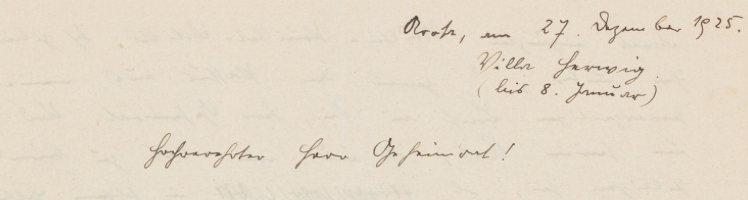 Arosa, am 27. Dezember 1925.
Villa Herwig.
(bis 8. Januar)
Hochverehrter Herr Geheimrat!